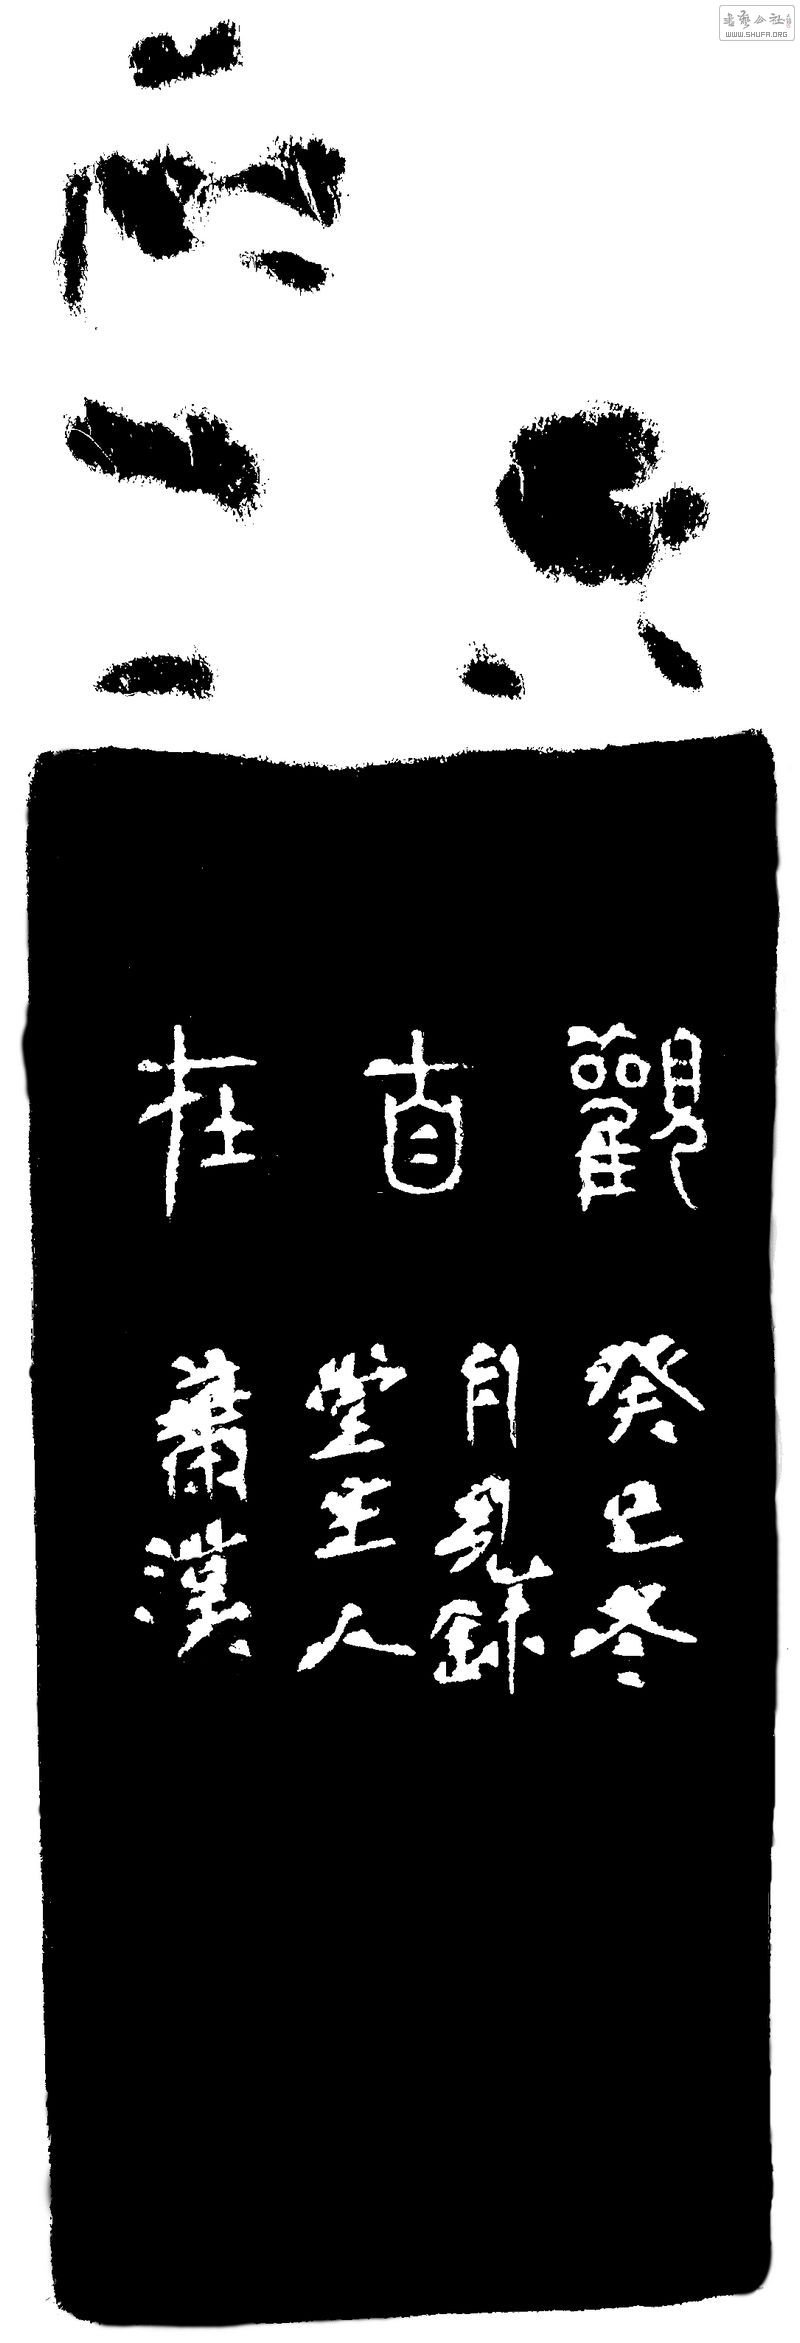 书艺公社
WWW.SHUFA.ORG
觀自在
癸巳冬
月
堂主人
蕭漢